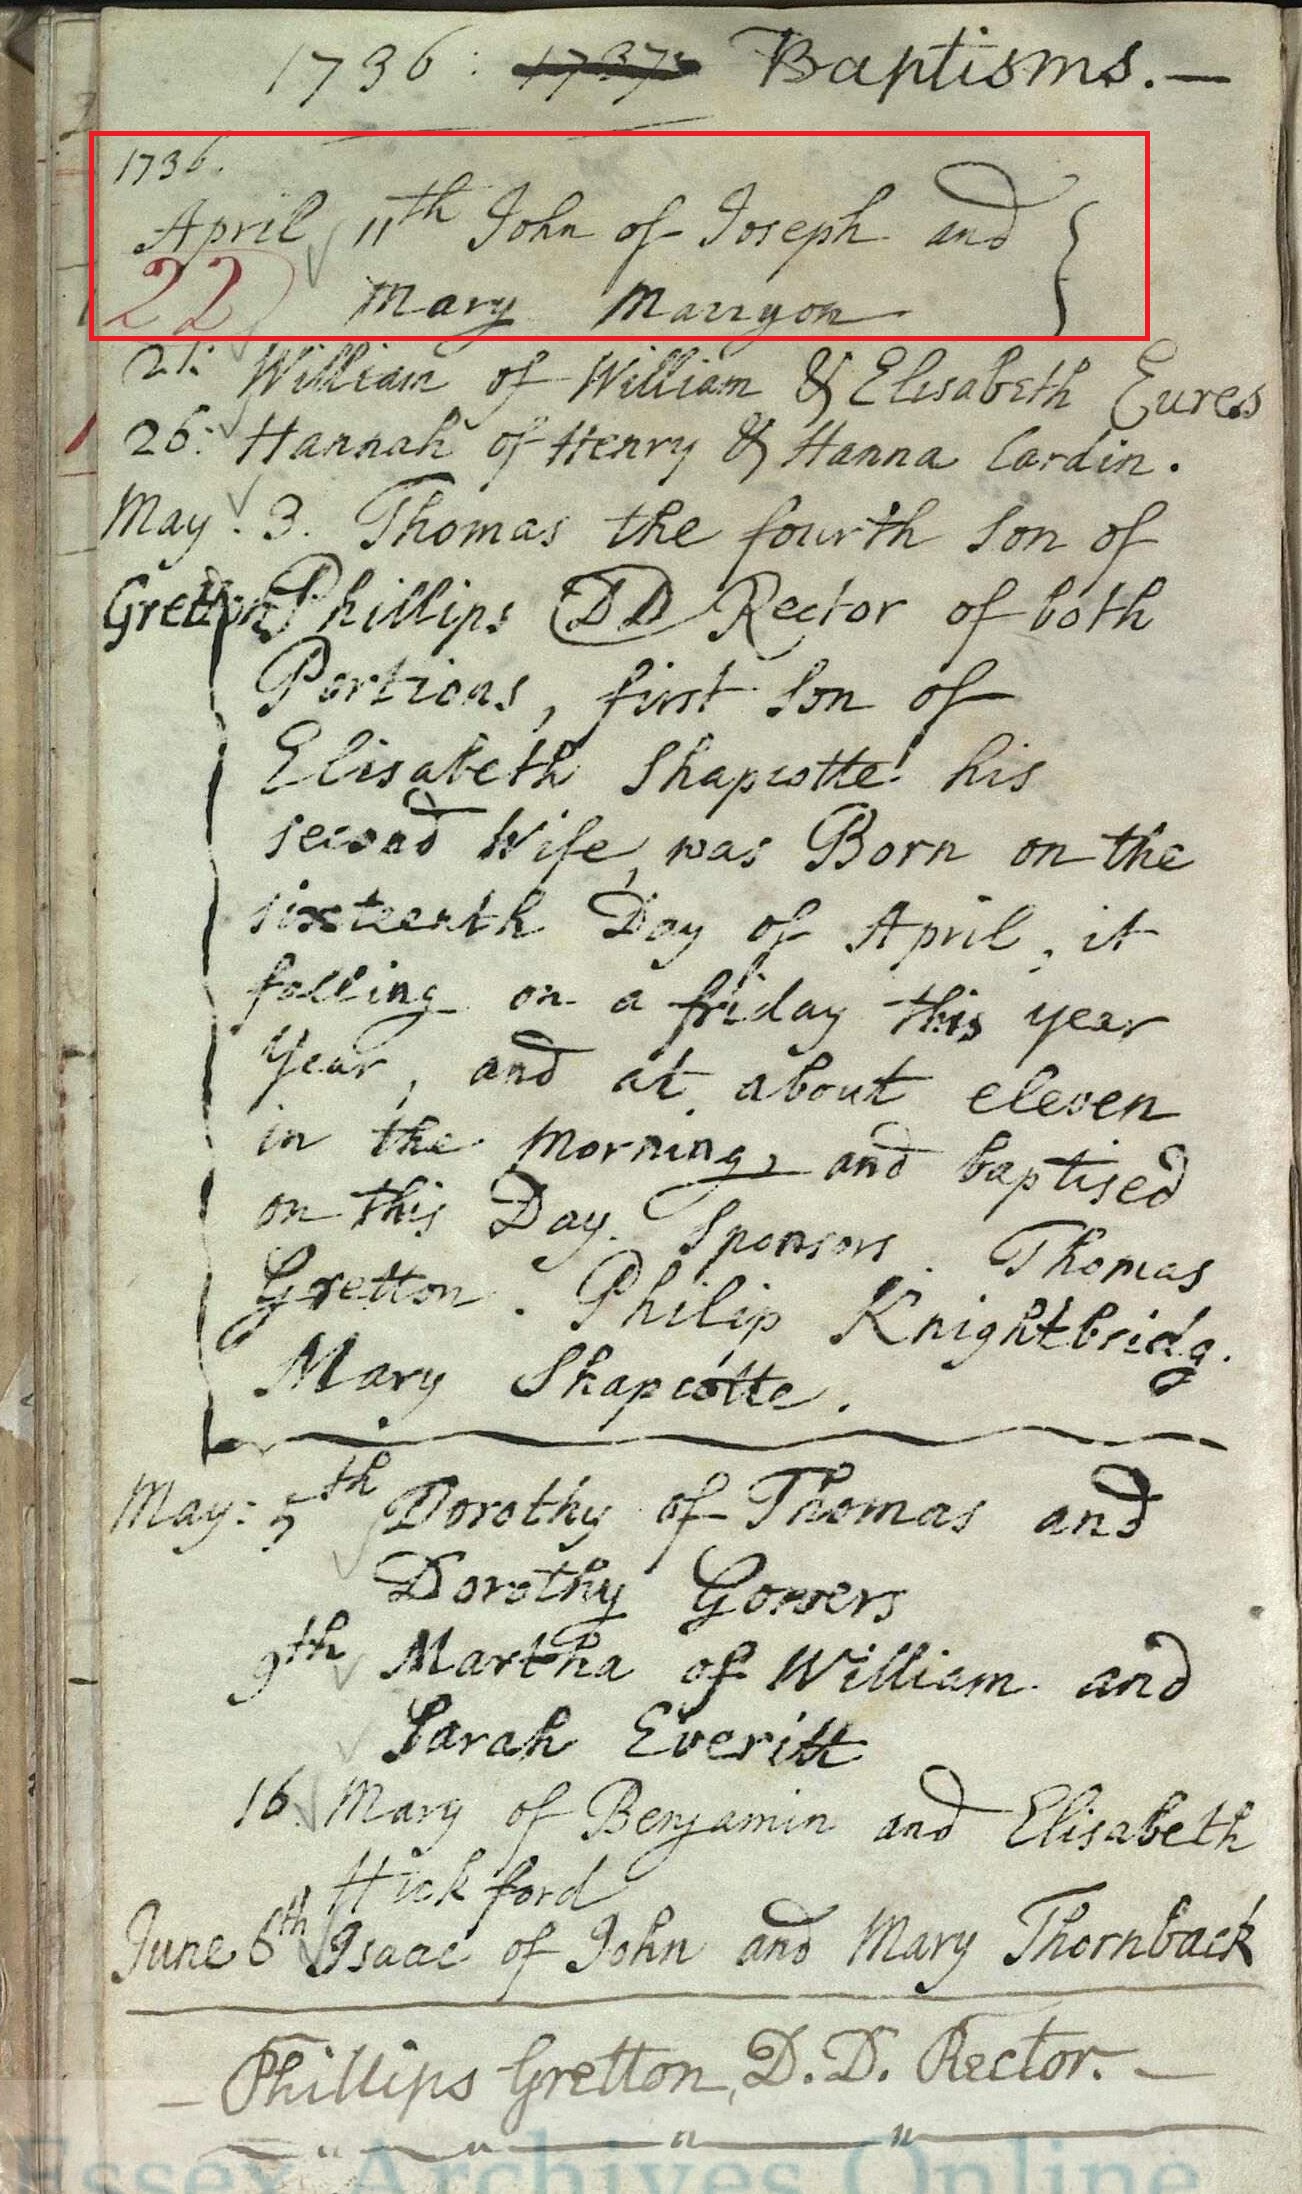 1736: 1737: Baptisms.—
1736.
April 11th John of Joseph and
22 Mary Marryon
21: William of William & Elisabeth Eures
26: Hannah of Henry & Hanna Cardin.
May. 3. Thomas the fourth son of
Gretton Phillips DD Rector of both
Portions, first son of
Elisabeth Shapcotte! his
second Wife, was Born on the
sixteenth Day of April, it
falling on a friday this year
Year, and at about eleven
in the Morning, and baptised
on this Day. Sponsors. Thomas
Gretton. Philip Knightbridg.
Mary Shapcotte.
May: 5th Dorothy of Thomas and
Dorothy Gowers
9th Martha of William and
Sarah Everitt
16. Mary of Benjamin and Elisabeth
Hickford
June 6th Isaac of John and Mary Thornback
— Phillips Gretton, D.D. Rector. —
Essex Archives Online